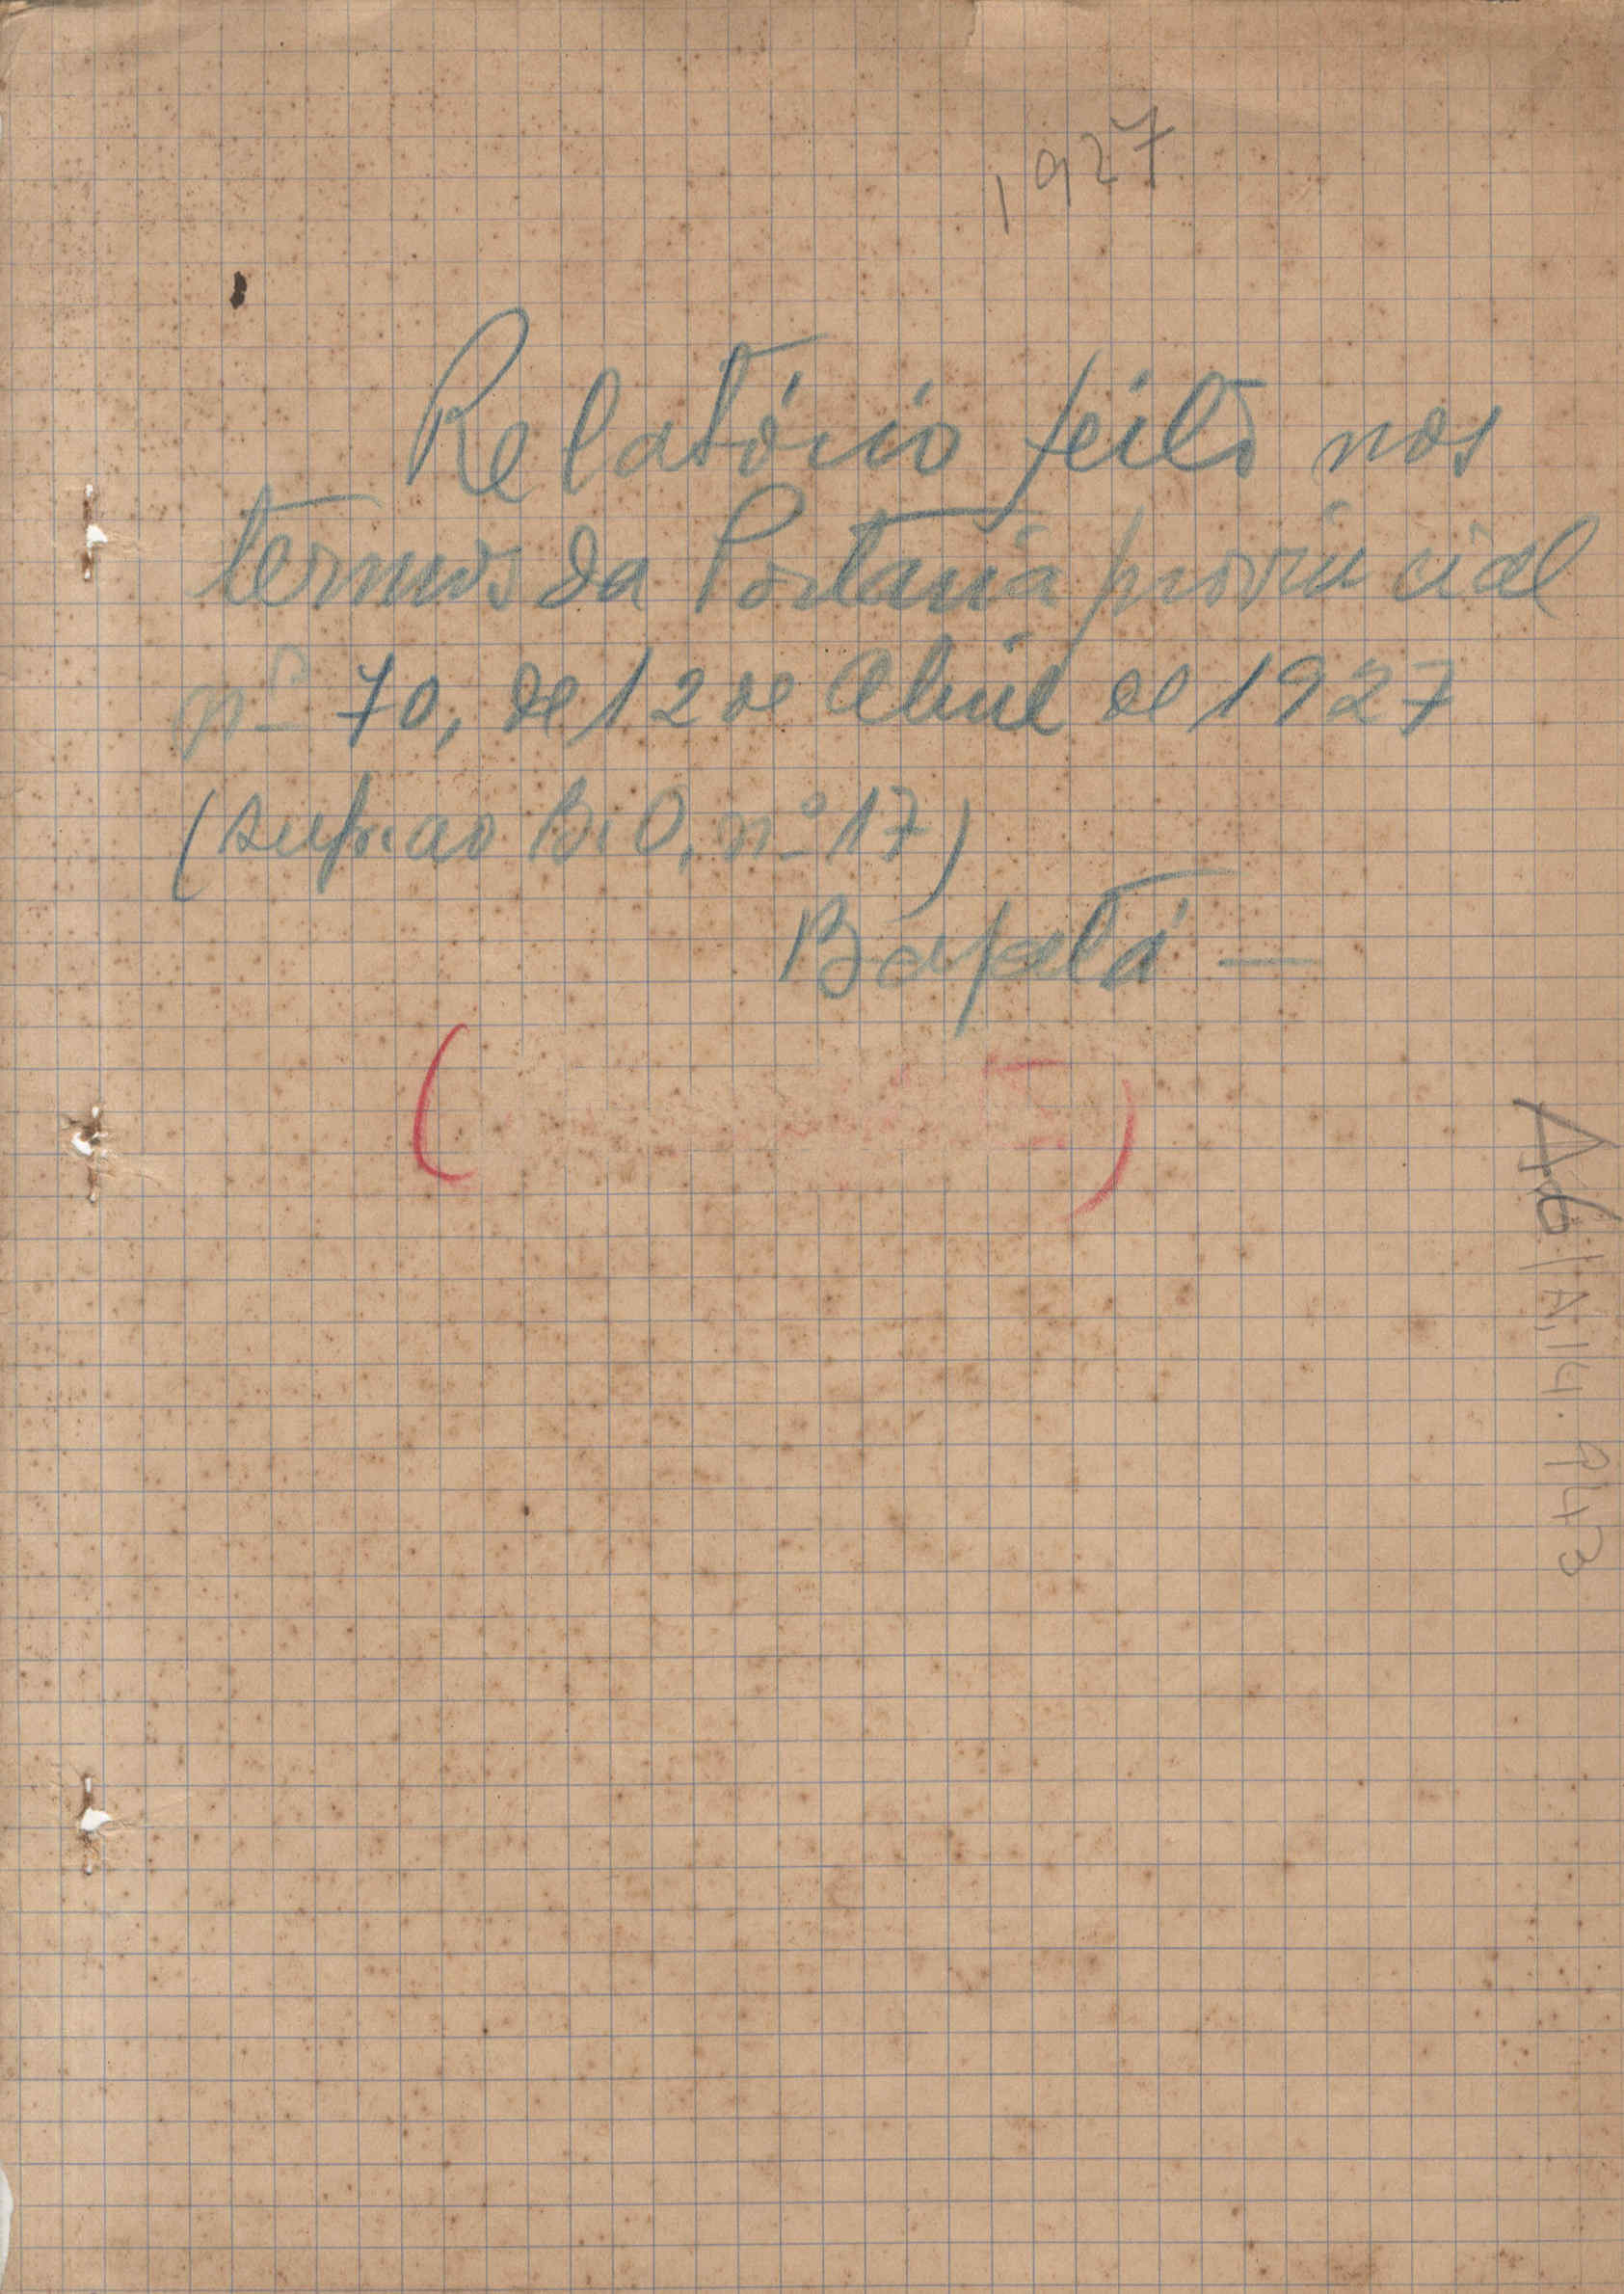 1927
Relatório feito nos
termos da Portaria provincial
nº 70, de 12 de Abril de 1927
(sup. ao B. O. nº 17)
Bafatá —
A6/A.14. 943